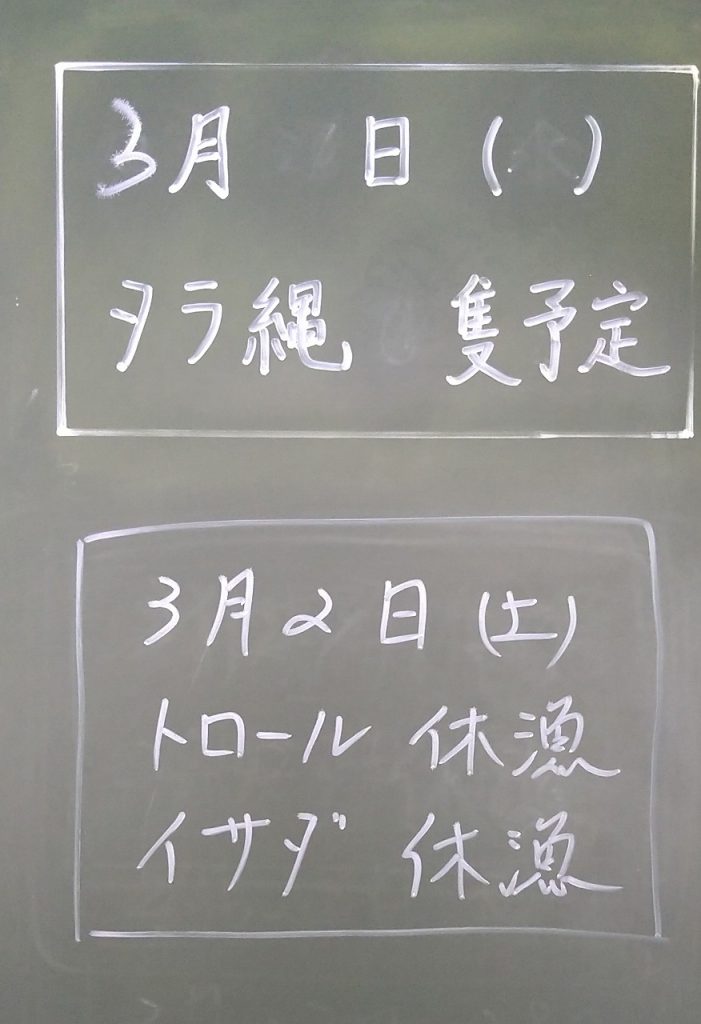 3月 日( )
タラ縄 隻予定
3月2日(土)
トロール 休漁
イサダ 休漁